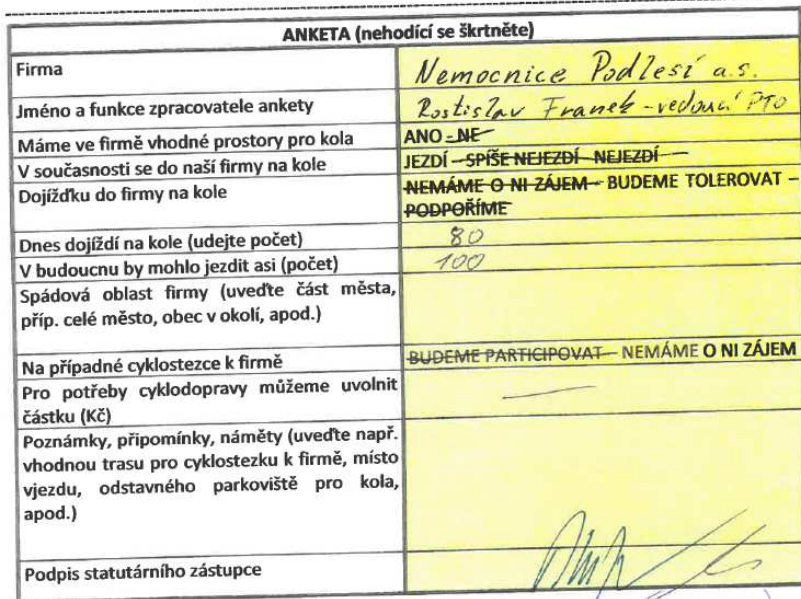 ANKETA (nehodící se škrtněte)
Firma Nemocnice Podlesí a.s.
Jméno a funkce zpracovatele ankety Rostislav Franek - vedoucí PTO
Máme ve firmě vhodné prostory pro kola ANO - NE
V současnosti se do naší firmy na kole JEZDÍ – SPÍŠE NEJEZDÍ – NEJEZDÍ
Dojížďku do firmy na kole NEMÁME O NI ZÁJEM – BUDEME TOLEROVAT –
PODPOŘÍME
Dnes dojíždí na kole (udejte počet) 80
V budoucnu by mohlo jezdit asi (počet) 100
Spádová oblast firmy (uveďte část města,
příp. celé město, obec v okolí, apod.)
Na případné cyklostezce k firmě BUDEME PARTICIPOVAT – NEMÁME O NI ZÁJEM
Pro potřeby cyklodopravy můžeme uvolnit
částku (Kč) —
Poznámky, připomínky, náměty (uveďte např.
vhodnou trasu pro cyklostezku k firmě, místo
vjezdu, odstavného parkoviště pro kola,
apod.)
Podpis statutárního zástupce